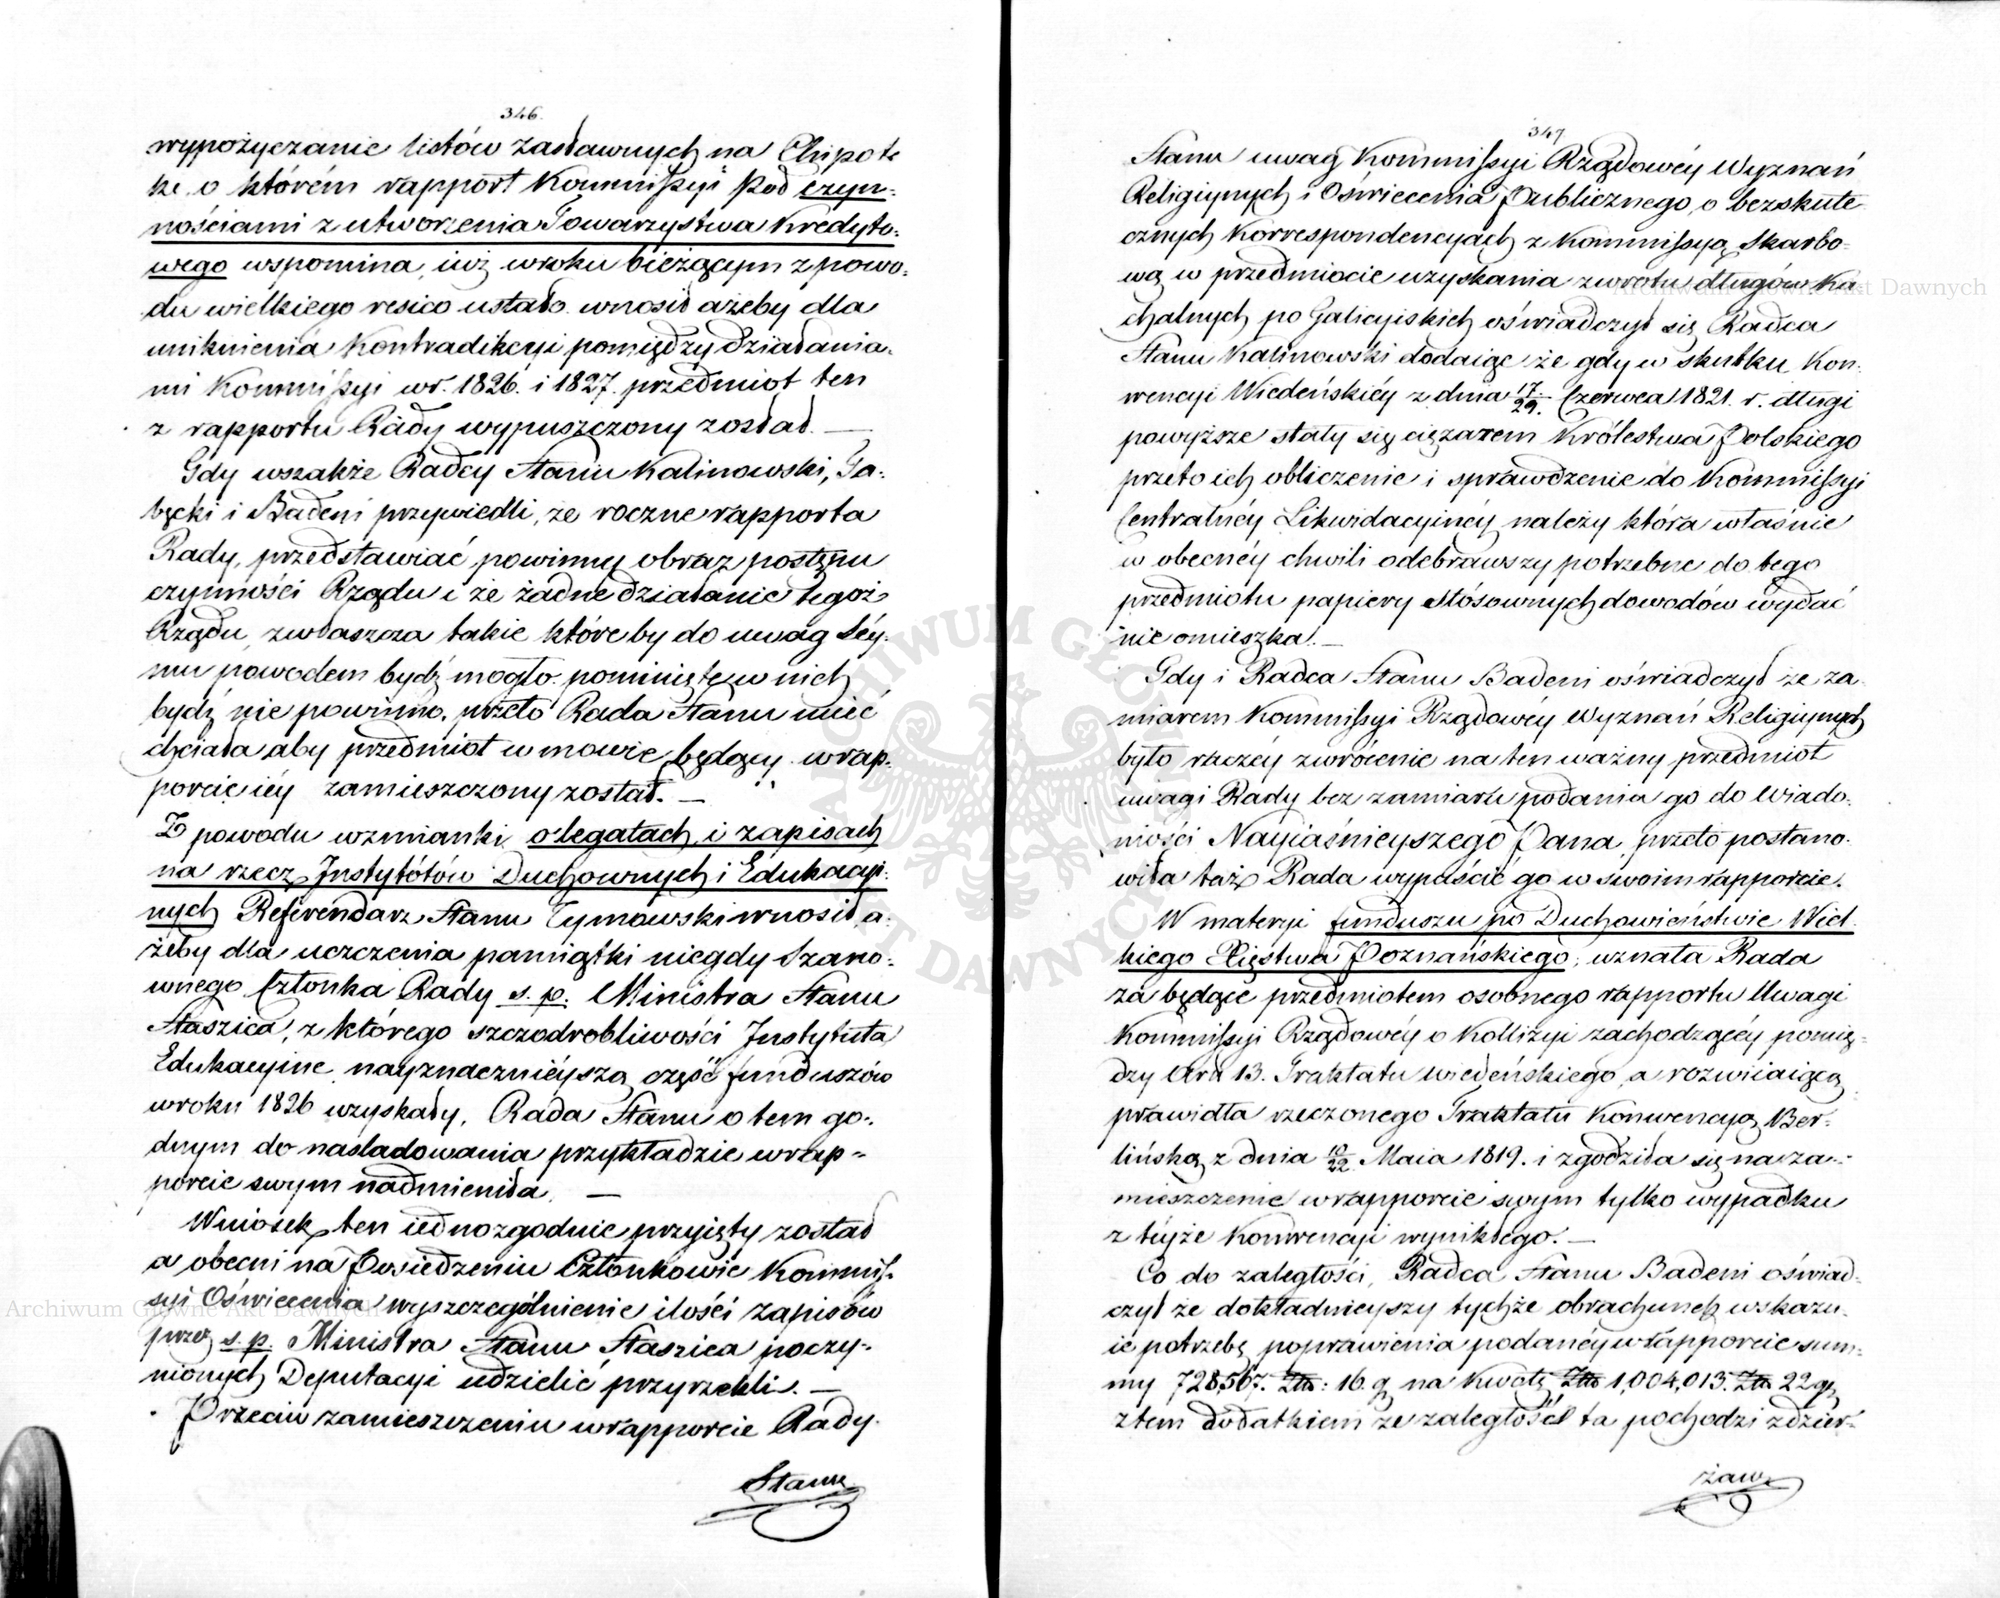 346.
wypożyczanie listów zastawnych na Chipote
kę o którém rapport Kommissyi Pod czyn-
nościami z utworzenia Towarzystwa Kredyto-
wego wspomina, iuż w roku bieżącym z powo-
du wielkiego resico ustało. wnosił ażeby dla
uniknienia Kontradikcyi pomiędzy działania-
mi Kommissyi w r. 1826. i 1827. przedmiot ten
z rapportu Rady wypuszczony został. —
Gdy wszakże Radcy Stanu Kalinowski, Ta-
bęcki i Badeni przywiedli, że roczne rapporta
Rady, przedstawiać powinny obraz postępu
czynności Rządu i że żadne działanie tegoż
Rządu, zwłaszcza takie któreby do uwag Séy-
mu powodem bydź mogło. pominięte w nich
bydź nie powinno, przeto Rada Stanu mieć
chciała aby przedmiot w mowie będący w rap-
porcie iéy zamieszczony został. —
Z powodu wzmianki o legatach i zapisach
na rzecz Instytótów Duchownych i Edukacyi-
nych Referendarz Stanu Tymowski wnosił, a-
żeby dla uczczenia pamiątki niegdy Szano-
wnego Członka Rady s. p. Ministra Stanu
Staszica, z którego szczodrobliwości Instytuta
Edukacyine nayznacznieyszą część funduszów
w roku 1826 uzyskały, Rada Stanu o tem go-
dnym do nasladowania przykładzie w rap-
porcie swym nadmieniła. —
Wniosek ten iednozgodnie przyięty został
a obecni na Posiedzeniu Członkowie Kommis-
syi Oświecenia wyszczególnienie ilości zapisów
przez s. p. Ministra Stanu Staszica poczy-
nionych Deputacyi udzielić przyrzekli. —
Przeciw zamieszczeniu w rapporcie Rady
Stanu
347.
Stanu uwag Kommissyi Rządowéy Wyznań
Religiynych i Oświecenia Publicznego, o bezskute
cznych Korrespondencyach z Kommissyą Skarbo-
wą w przedmiocie uzyskania zwrotu długów Ka
chalnych po Galicyiskich oświadczył się Radca
Stanu Kalinowski dodaiąc że gdy w skutku Kon-
wencyi Wiedeńskiéy z dnia 17/29. Czerwca 1821. r. długi
powyższe stały się ciężarem Królestwa Polskiego
przeto ich obliczenie i sprawdzenie do Kommissyi
Centralnéy Likwidacyinéy należy która właśnie
w obecnéy chwili odebrawszy potrzebne do tego
przedmiotu papiery stósownych dowodów wydać
nie omieszka. —
Gdy i Radca Stanu Badeni oświadczył że za-
miarem Kommissyi Rządowéy Wyznań Religiynych
było raczéy zwrócenie na ten ważny przedmiot
uwagi Rady bez zamiaru podania go do Wiado-
mości Nayiaśnieyszego Pana, przeto postano-
wiła taż Rada wypuścić go w swoim rapporcie.
W materyi funduszu po Duchowieństwie Wiel-
kiego Xięstwa Poznańskiego, uznała Rada
za będące przedmiotem osobnego rapportu Uwagi
Kommissyi Rządowéy o Kollizyi zachodzącéy pomię-
dzy Art 13. Traktatu wiedeńskiego, a rozwiiaiącą
prawidła rzeczonego Traktatu Konwencyą Ber-
lińską z dnia 10/22 Maia 1819. i zgodziła się na za-
mieszczenie w rapporcie swym tylko wypadku
z téyże Konwencyi wynikłego. —
Co do zaległości, Radca Stanu Badeni oświad-
czył że dokładnieyszy tychże obrachunek wskazu-
ie potrzebę poprawienia podanéy w rapporcie sum-
my 728,567. Złto: 16. g na Kwotę Złto 1,004,013. Złto 22 g,
z tem dodatkiem że zaległość ta pochodzi z dzier-
żaw
Archiwum Główne Akt Dawnych
Archiwum Główne Akt Dawnych
ARCHIWUM GŁÓWNE AKT DAWNYCH